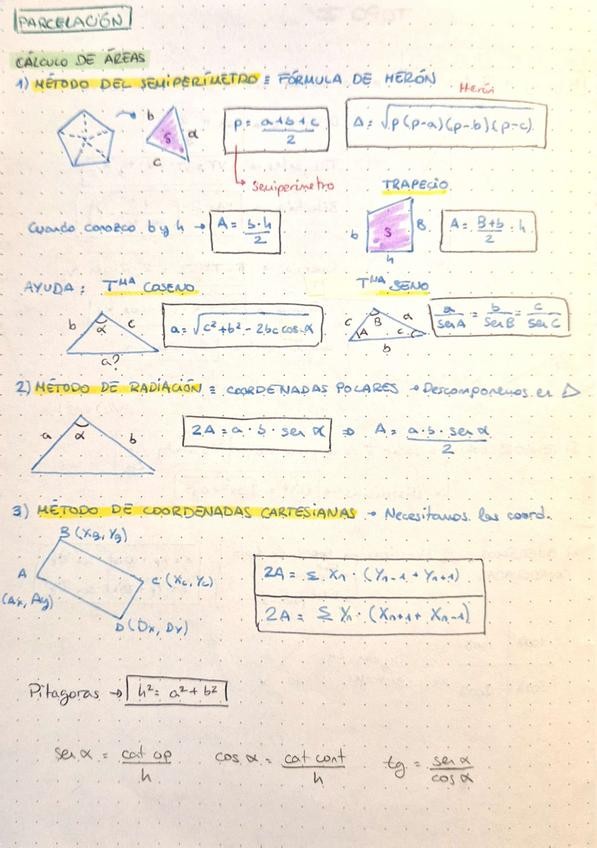 PARCELACIÓN
CÁLCULO DE ÁREAS
1) MÉTODO DEL SEMIPERÍMETRO ≡ FÓRMULA DE HERÓN
Herón
b
a
c
S
p = a+b+c / 2
Δ = √p(p-a)(p-b)(p-c)
semiperímetro
TRAPECIO
Cuando conozco b y h → A = b·h / 2
b
S
B
h
A = B+b / 2 · h
AYUDA: TᴹᴬCOSENO
TᴹᴬSENO
b
α
c
a?
a = √c²+b²-2bc cos α
c
B
a
A
C
b
a / sen A = b / sen B = c / sen C
2) MÉTODO DE RADIACIÓN ≡ COORDENADAS POLARES → Descomponemos en △
a
α
b
2A = a·b·sen α ⇒ A = a·b·sen α / 2
3) MÉTODO DE COORDENADAS CARTESIANAS → Necesitamos las coord.
B (XB, YB)
A
(Ax, Ay)
C (Xc, Yc)
D (Dx, Dy)
2A = Σ Xn · (Yn-1 + Yn+1)
2A = Σ Yn · (Xn+1 + Xn-1)
Pitagoras → h² = a² + b²
sen α = cat op / h
cos α = cat cont / h
tg = sen α / cos α